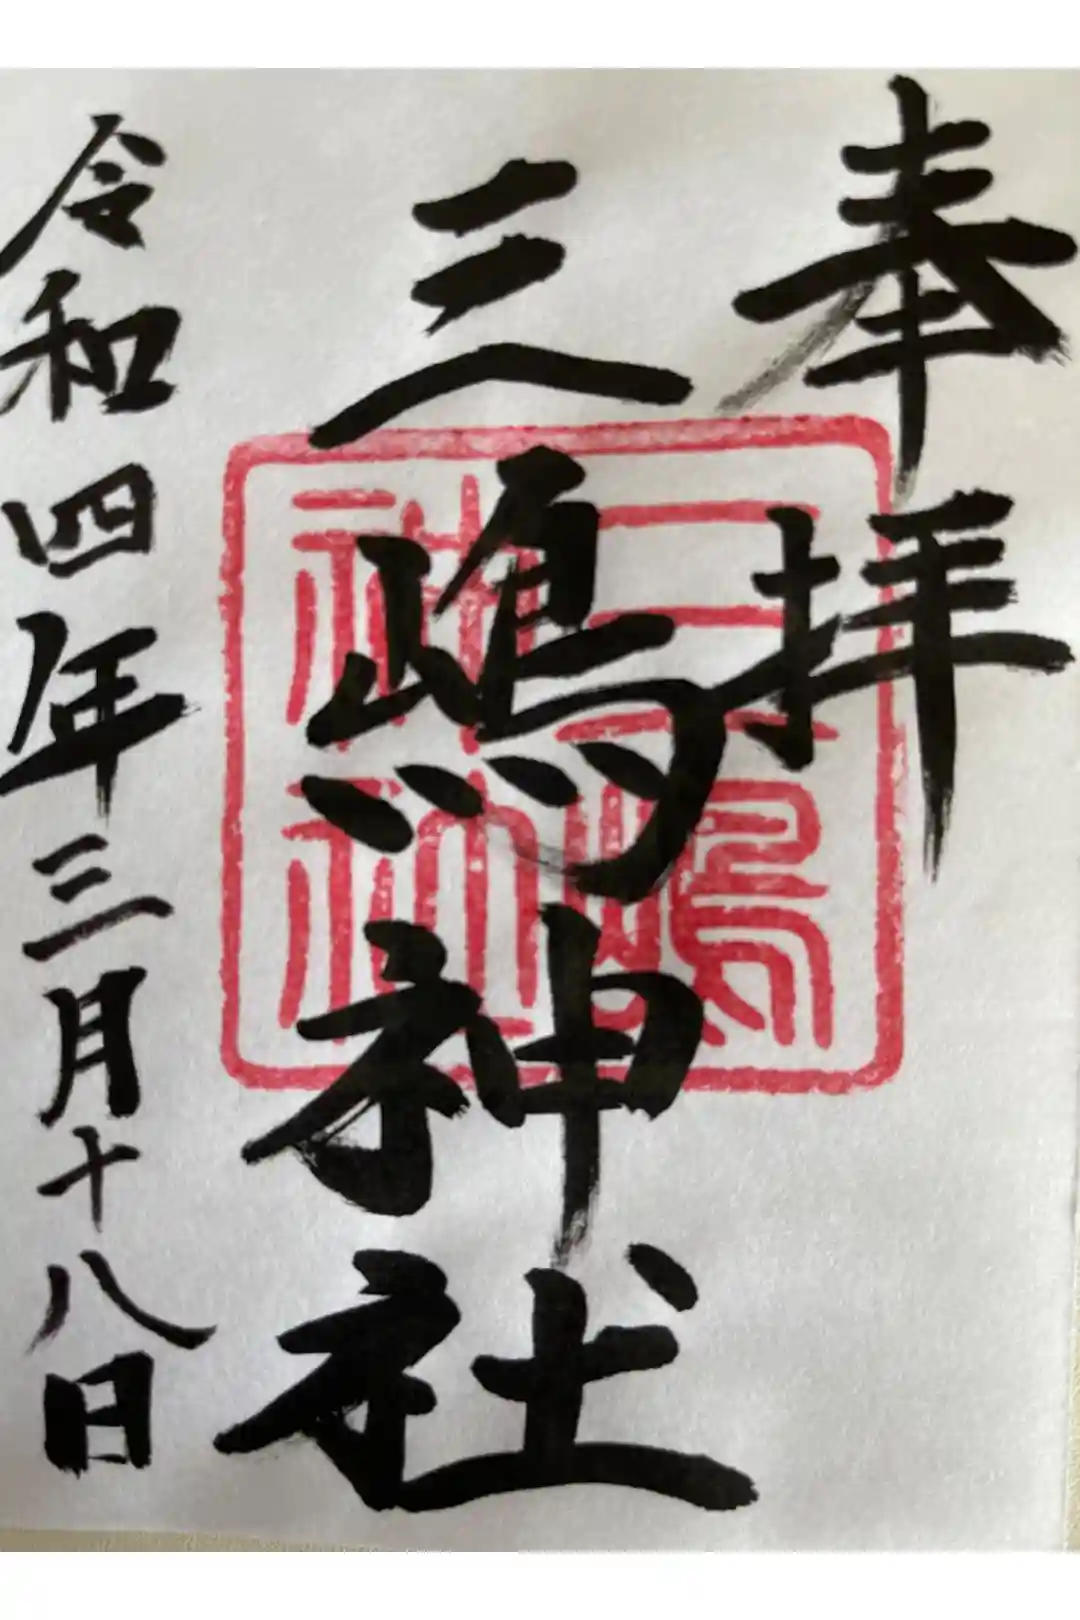 奉拝
三嶋神社
三嶋神社
令和四年三月十八日